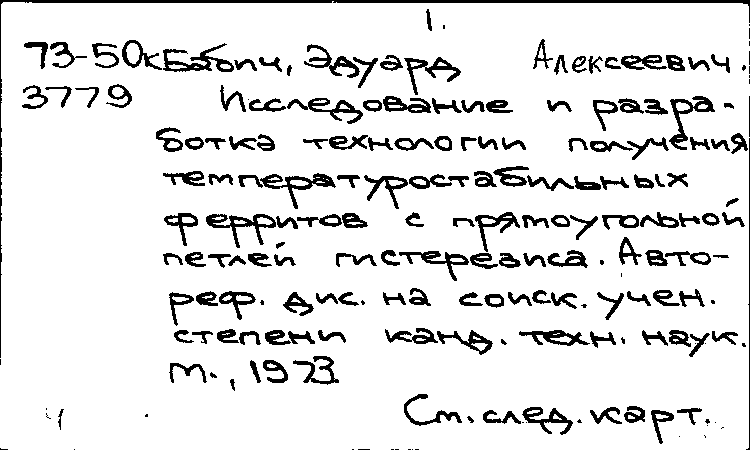 1.
73-50к Бабич, Эдуард Алексеевич.
3779 Исследование и разра-
ботка технологии получения
температуростабильных
ферритов с прямоугольной
петлей гистерезиса. Авто-
реф. дис. на соиск. учен.
степени канд. техн. наук.
М., 1973
Ст. след. карт.